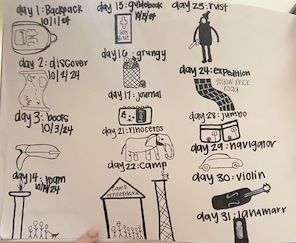 day 1: Backpack
10/1/24
day 2: discover
10/2/24
day 3: boots
10/3/24
day 14: roam
day 15: guidebook
day 16: grungy
day 17: journal
day 21: rinoceros
day 22: camp
day 25: rust
day 24: expedition
yellow brick
road
day 28: jumbo
day 29: navigator
day 30: violin
day 31: landmark